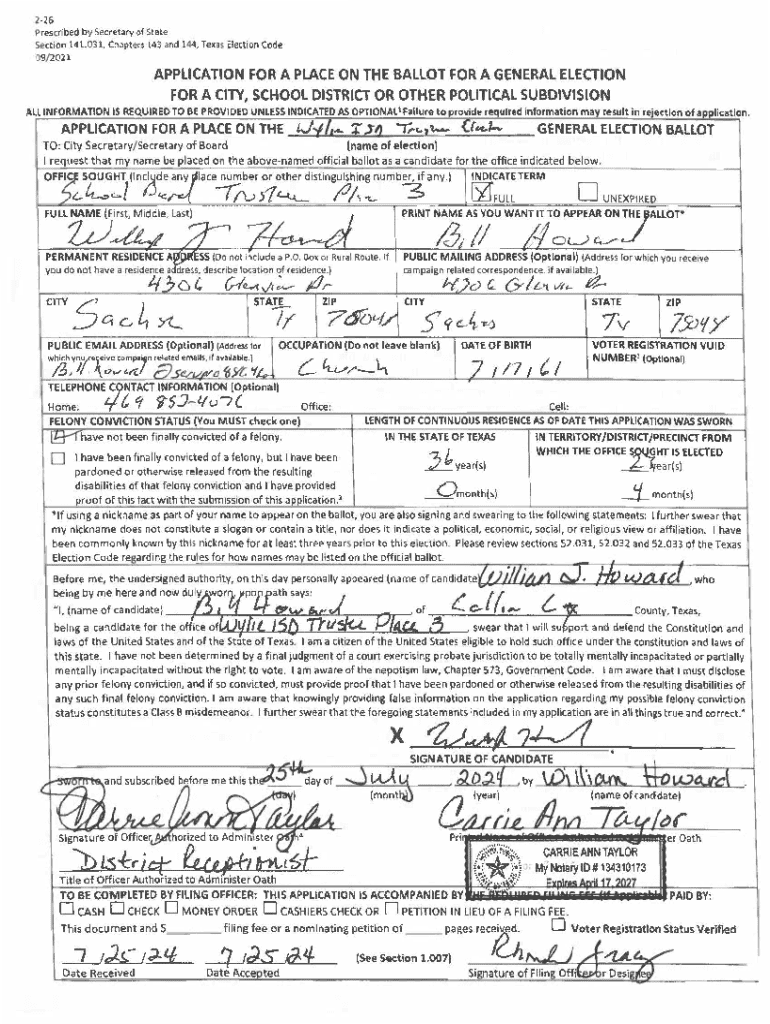 2-26
Prescribed by Secretary of State
Section 141.031, Chapters 143 and 144, Texas Election Code
09/2021
APPLICATION FOR A PLACE ON THE BALLOT FOR A GENERAL ELECTION
FOR A CITY, SCHOOL DISTRICT OR OTHER POLITICAL SUBDIVISION
ALL INFORMATION IS REQUIRED TO BE PROVIDED UNLESS INDICATED AS OPTIONAL¹ Failure to provide required information may result in rejection of application.
APPLICATION FOR A PLACE ON THE Wylie ISD Trustee GENERAL ELECTION BALLOT
TO: City Secretary/Secretary of Board (name of election)
I request that my name be placed on the above-named official ballot as a candidate for the office indicated below.
OFFICE SOUGHT (Include any place number or other distinguishing number, if any.) INDICATE TERM
School Bord Trustee Place 3 X FULL UNEXPIRED
FULL NAME (First, Middle, Last) PRINT NAME AS YOU WANT IT TO APPEAR ON THE BALLOT*
J Howard Bill Howard
PERMANENT RESIDENCE ADDRESS (Do not include a P.O. Box or Rural Route. If you do not have a residence address, describe location of residence.) PUBLIC MAILING ADDRESS (Optional) (Address for which you receive campaign related correspondence, if available.)
4306 Glenview Dr 4306 Glenview Dr
CITY STATE ZIP CITY STATE ZIP
Sachse Tx 75048 Sachse Tx 75048
PUBLIC EMAIL ADDRESS (Optional) (Address for which you receive campaign related emails, if available.) OCCUPATION (Do not leave blank) DATE OF BIRTH VOTER REGISTRATION VUID NUMBER¹ (Optional)
Church 7/17/61
TELEPHONE CONTACT INFORMATION (Optional)
Home: 469 853-4076 Office: Cell:
FELONY CONVICTION STATUS (You MUST check one) LENGTH OF CONTINUOUS RESIDENCE AS OF DATE THIS APPLICATION WAS SWORN
I have not been finally convicted of a felony. IN THE STATE OF TEXAS IN TERRITORY/DISTRICT/PRECINCT FROM WHICH THE OFFICE SOUGHT IS ELECTED
I have been finally convicted of a felony, but I have been 36 year(s) 23 year(s)
pardoned or otherwise released from the resulting
disabilities of that felony conviction and I have provided 0 month(s) 4 month(s)
proof of this fact with the submission of this application.²
*If using a nickname as part of your name to appear on the ballot, you are also signing and swearing to the following statements: I further swear that
my nickname does not constitute a slogan or contain a title, nor does it indicate a political, economic, social, or religious view or affiliation. I have
been commonly known by this nickname for at least three years prior to this election. Please review sections 52.031, 52.032 and 52.033 of the Texas
Election Code regarding the rules for how names may be listed on the official ballot.
Before me, the undersigned authority, on this day personally appeared (name of candidate) William J. Howard, who
being by me here and now duly sworn, upon oath says:
"I, (name of candidate) Bill Howard of Collin Co County, Texas,
being a candidate for the office of Wylie ISD Trustee Place 3, swear that I will support and defend the Constitution and
laws of the United States and of the State of Texas. I am a citizen of the United States eligible to hold such office under the constitution and laws of
this state. I have not been determined by a final judgment of a court exercising probate jurisdiction to be totally mentally incapacitated or partially
mentally incapacitated without the right to vote. I am aware of the nepotism law, Chapter 573, Government Code. I am aware that I must disclose
any prior felony conviction, and if so convicted, must provide proof that I have been pardoned or otherwise released from the resulting disabilities of
any such final felony conviction. I am aware that knowingly providing false information on the application regarding my possible felony conviction
status constitutes a Class B misdemeanor. I further swear that the foregoing statements included in my application are in all things true and correct."
X
SIGNATURE OF CANDIDATE
Sworn to and subscribed before me this the 25th day of July 2024, by William Howard.
(day) (month) (year) (name of candidate)
Carrie Ann Taylor Carrie Ann Taylor
Signature of Officer Authorized to Administer Oath⁴ Printed Name of Officer Authorized to Administer Oath
District Receptionist CARRIE ANN TAYLOR
My Notary ID # 134310173
Title of Officer Authorized to Administer Oath Expires April 17, 2027
TO BE COMPLETED BY FILING OFFICER: THIS APPLICATION IS ACCOMPANIED BY THE REQUIRED FILING FEE (If Applicable) PAID BY:
CASH CHECK MONEY ORDER CASHIERS CHECK OR PETITION IN LIEU OF A FILING FEE.
This document and $ filing fee or a nominating petition of pages received. Voter Registration Status Verified
7/25/24 7/25/24 (See Section 1.007)
Date Received Date Accepted Signature of Filing Officer or Designee